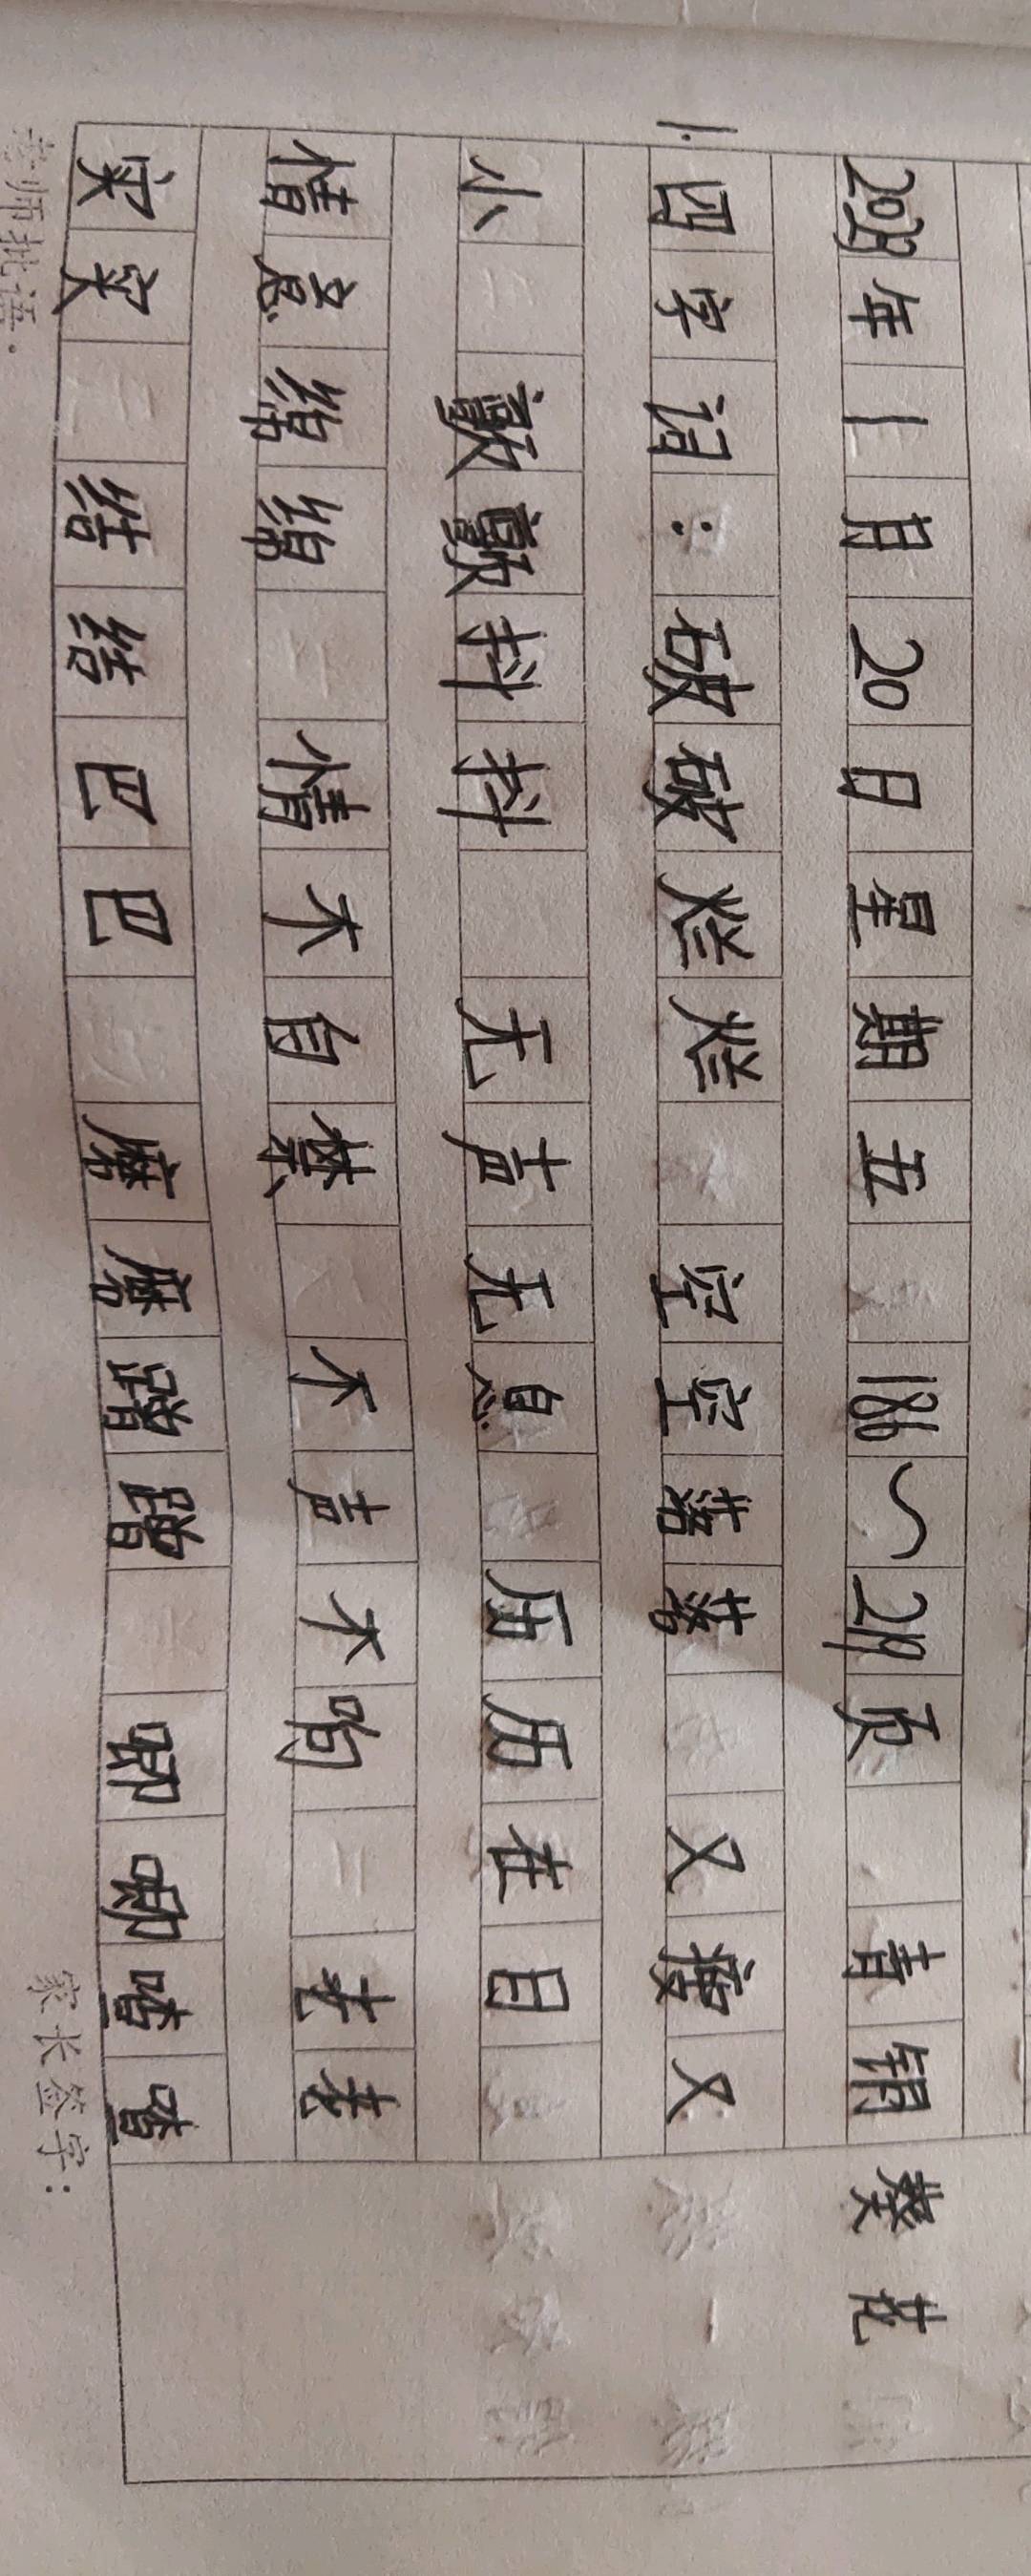 2023年1月20日星期五 186～219页 青铜葵花
1.四字词：破破烂烂 空空落落 又瘦又
小 颤颤抖抖 无声无息 历历在目
情意绵绵 情不自禁 不声不响 老老
实实 结结巴巴 磨磨蹭蹭 唧唧喳喳
老师批语： 家长签字：